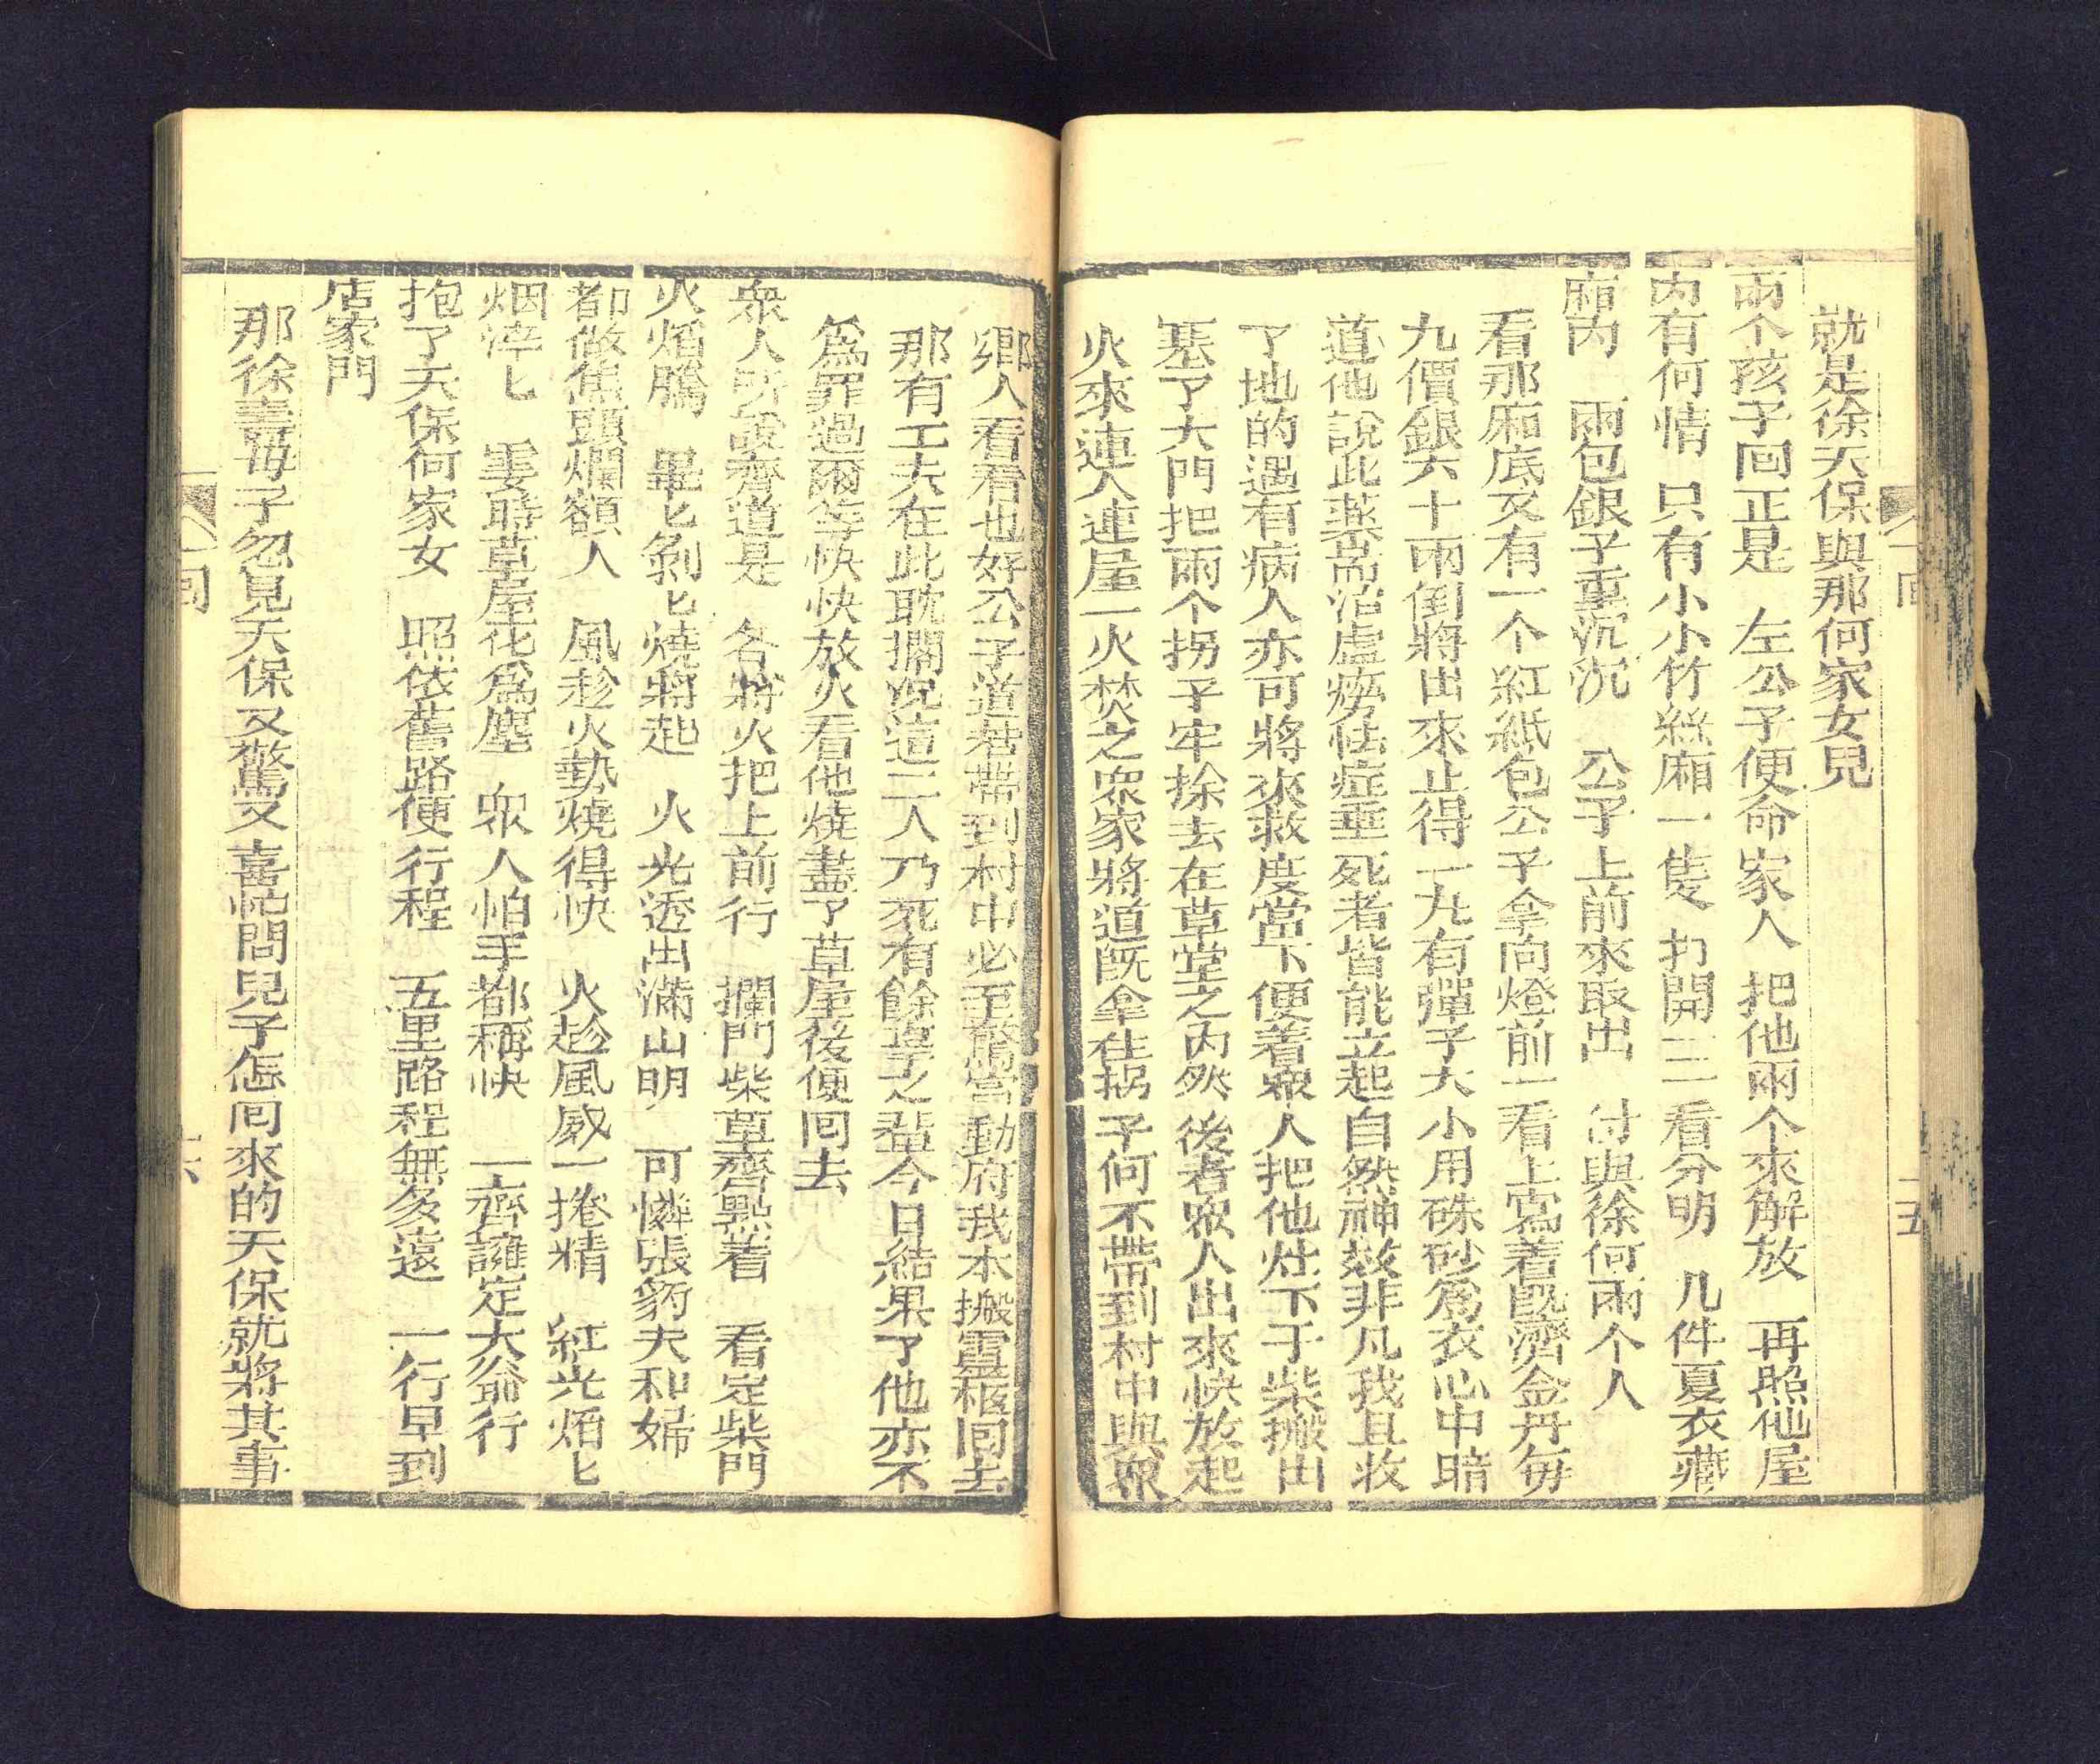 就是徐天保與那何家女兒
兩个孩子回正是 左公子便命家人 把他兩个來解放 再照他屋
內有何情 只有小小竹絲廂一隻 扚開一一看分明 几件夏衣藏
廂內 兩包銀子重沉沉 公子上前來取出 付與徐何兩个人
看那廂底又有一个紅紙包公子拿向燈前一看上寫着既濟金丹每
九價銀六十兩倒將出來止得一九有彈子大小用硃砂爲衣心中暗
道他說此藥耑治虛癆怯症垂死者皆能立起自然神效非凡我且收
了他的遇有病人亦可將來救度當下便着眾人把他灶下于柴搬出
塞了大門把兩个拐子牢捨去在草堂之內然後者眾人出來快放起
火來連人連屋一火焚之眾家將道既拿住拐子何不帶到村中與眾
鄉人看看也好公子道若帶到村中必至驚動府我本搬靈柩回去
那有工夫在此耽擱況這二人乃死有餘辜之輩今日結果了他亦不
爲罪過爾等快快放火看他燒盡了草屋後便回去
衆人所說齊道是 各將火把上前行 攔門柴草齊點着 看定柴門
火熖騰 畢匕剝匕燒將起 火光透出滿山明 可憐張豹夫和婦
都做焦頭爛額人 風趁火勢燒得快 火趁風威一捲精 紅光熖匕
烟滓匕 霎時草屋花爲塵 眾人怕手都稱快 一齊擁定大爺行
抱了天保何家女 照依舊路便行程 五里路程無多遠 一行早到
店家門
那徐壽母子忽見天保又驚又喜忙問兒子怎回來的天保就將其事